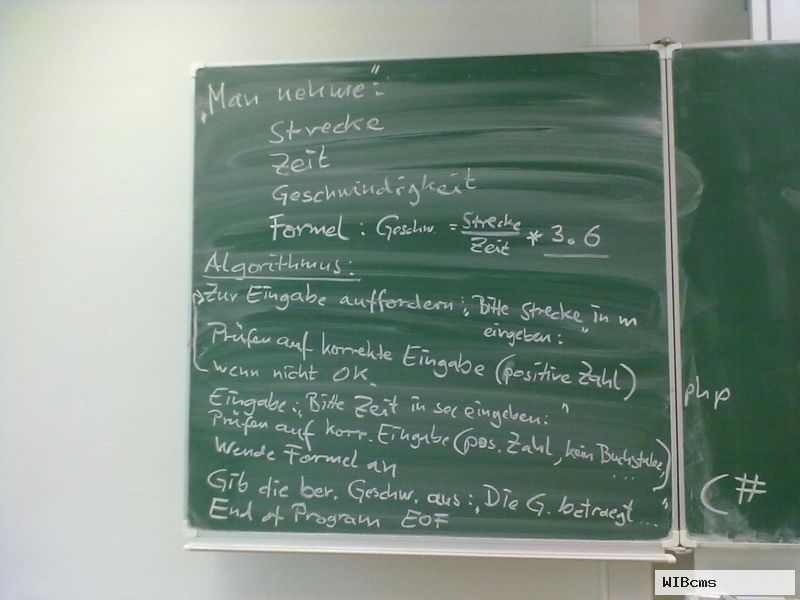 „Man nehme":
Strecke
Zeit
Geschwindigkeit
Formel : Geschw. = Strecke / Zeit * 3.6
Algorithmus:
Zur Eingabe auffordern: „Bitte Strecke in m
eingeben:"
Prüfen auf korrekte Eingabe (positive Zahl)
wenn nicht OK.
Eingabe: „Bitte Zeit in sec eingeben:"
Prüfen auf korr. Eingabe (pos. Zahl, kein Buchstabe, ...)
Wende Formel an
Gib die ber. Geschw. aus: „Die G. betraegt ..."
End of Program EOF
php
C#
WIBcms